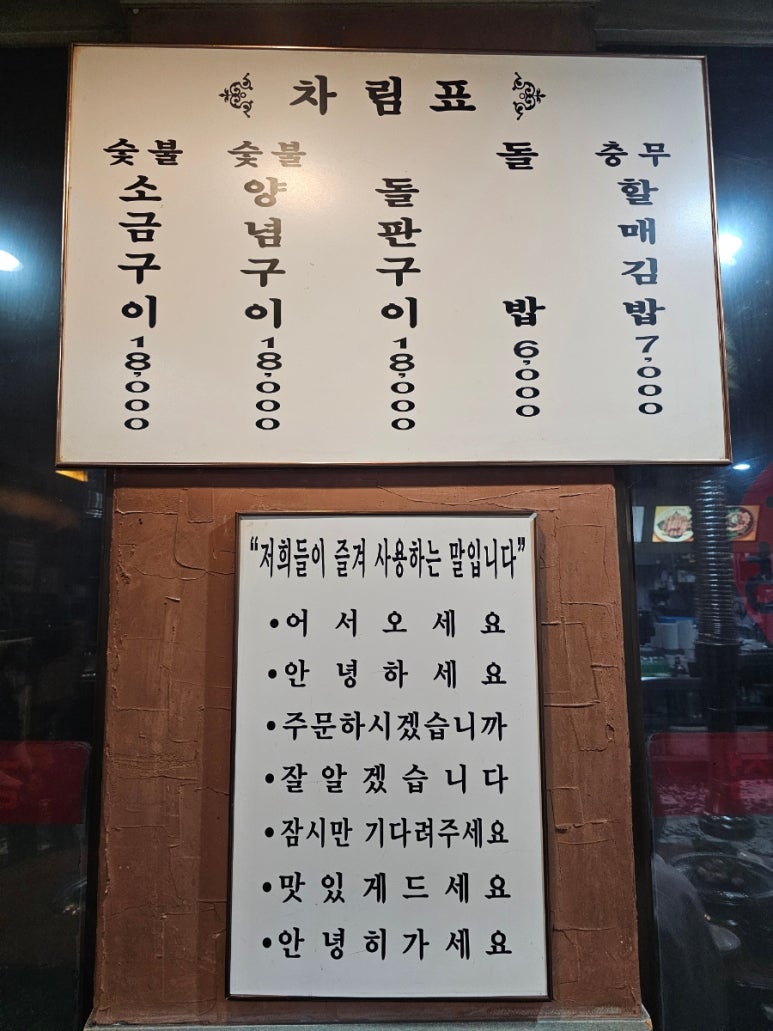 차림표
숯불 소금구이 18,000
숯불 양념구이 18,000
돌판구이 18,000
돌밥 6,000
충무 할매김밥 7,000
“저희들이 즐겨 사용하는 말입니다”
•어서오세요
•안녕하세요
•주문하시겠습니까
•잘알겠습니다
•잠시만 기다려주세요
•맛있게드세요
•안녕히가세요